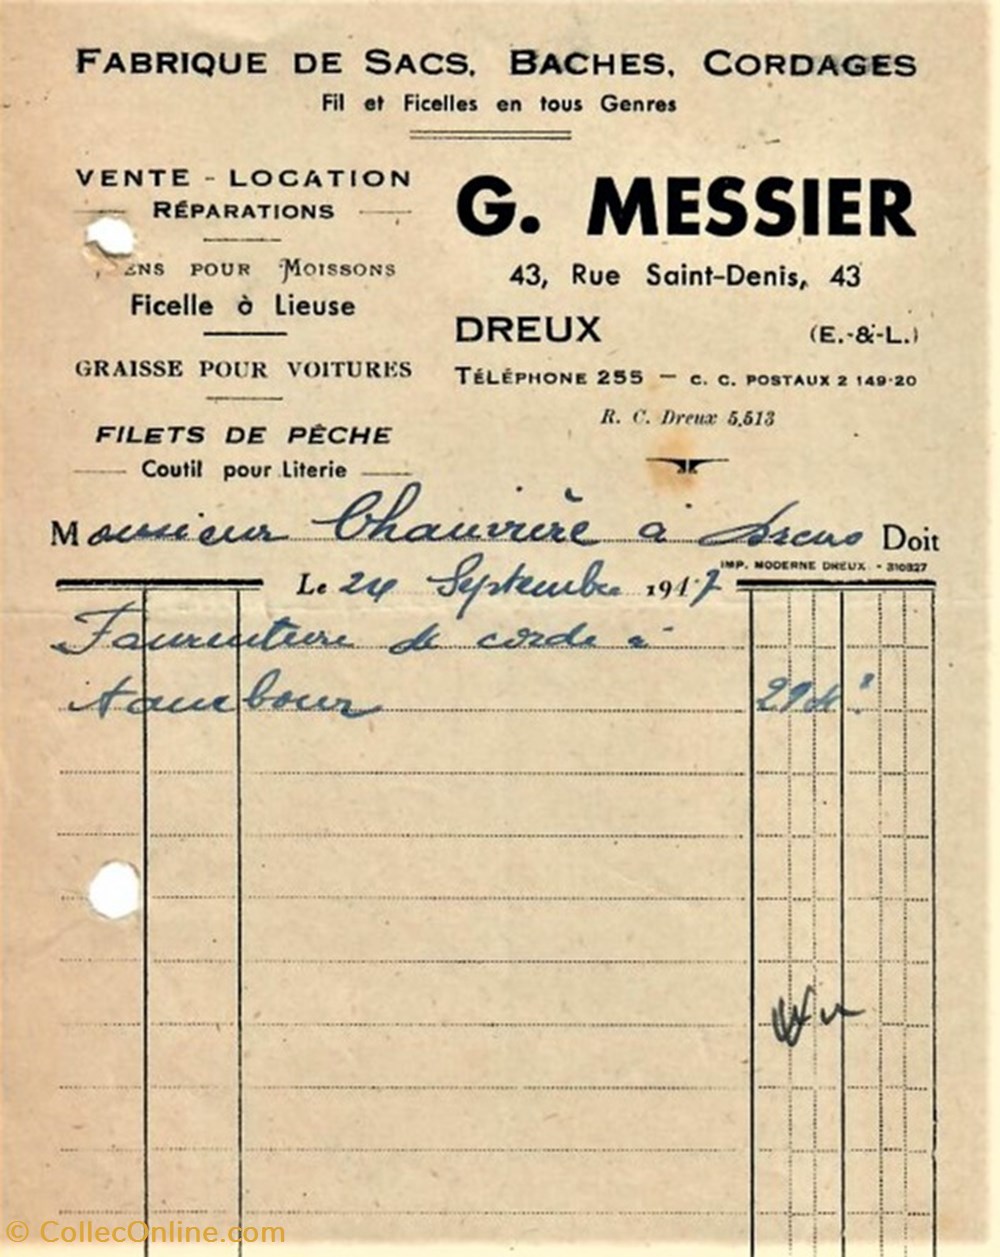 FABRIQUE DE SACS, BACHES, CORDAGES
Fil et Ficelles en tous Genres
VENTE - LOCATION
RÉPARATIONS
POUR MOISSONS
Ficelle à Lieuse
GRAISSE POUR VOITURES
FILETS DE PÊCHE
Coutil pour Literie
G. MESSIER
43, Rue Saint-Denis, 43
DREUX (E.-&-L.)
TÉLÉPHONE 255 — C. C. POSTAUX 2 149-20
R. C. Dreux 5.513
Monsieur Chauvière à Dreux Doit
IMP. MODERNE DREUX. - 310827
Le 24 Septembre 1947
Fourniture de corde à
tambour
© CollecOnline.com